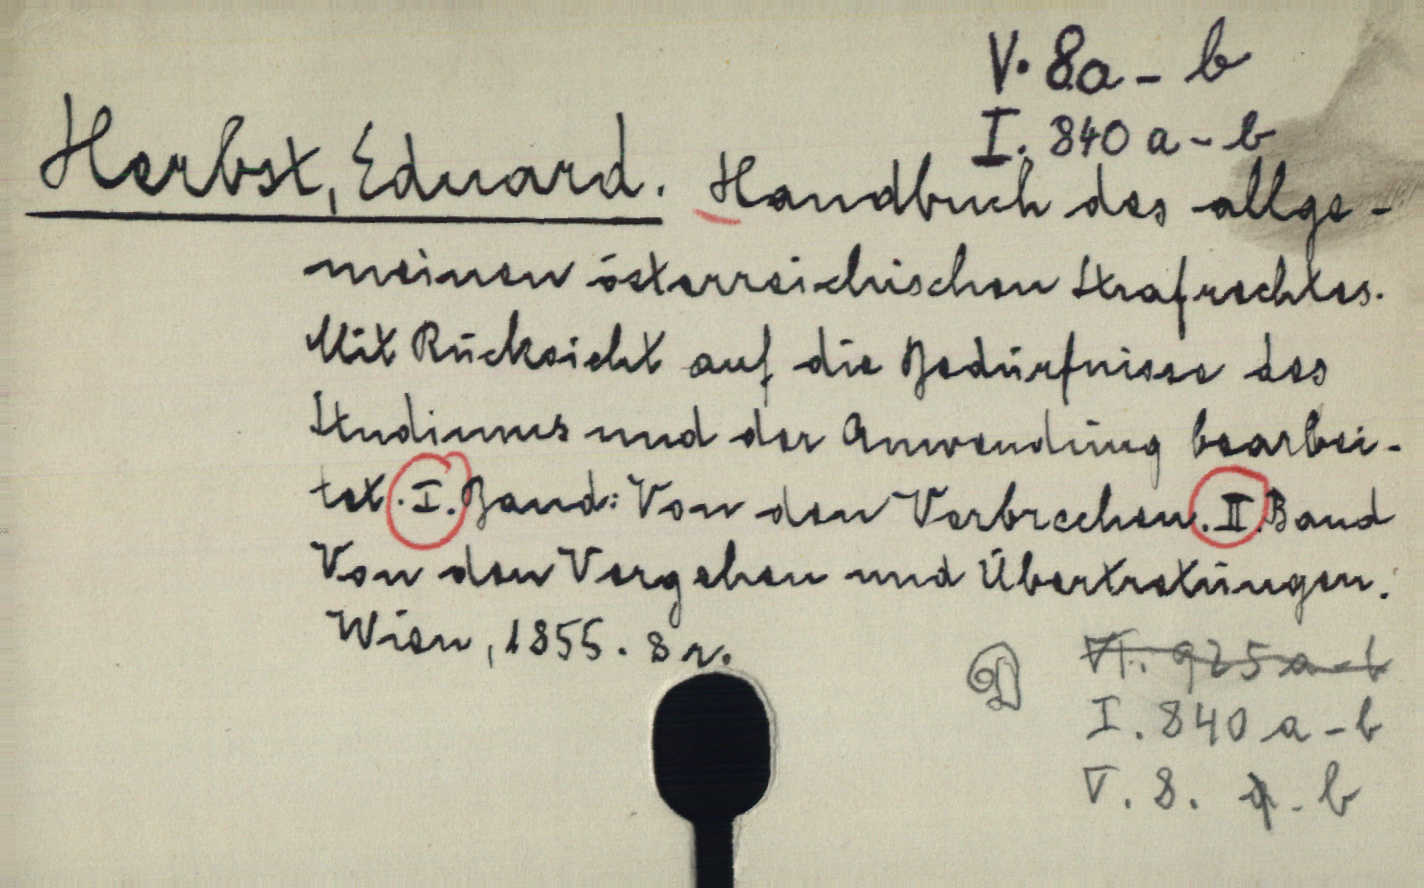 V. 8a - b
I. 840 a - b
Herbst, Eduard. Handbuch des allge-
meinen österreichischen Strafrechtes.
Mit Rücksicht auf die Bedürfnisse des
Studiums und der Anwendung bearbei-
tet. I. Band: Von den Verbrechen. II. Band
Von den Vergehen und Übertretungen.
Wien, 1855. 8 r.
VI. 925 a - b
I. 840 a - b
V. 8. a - b